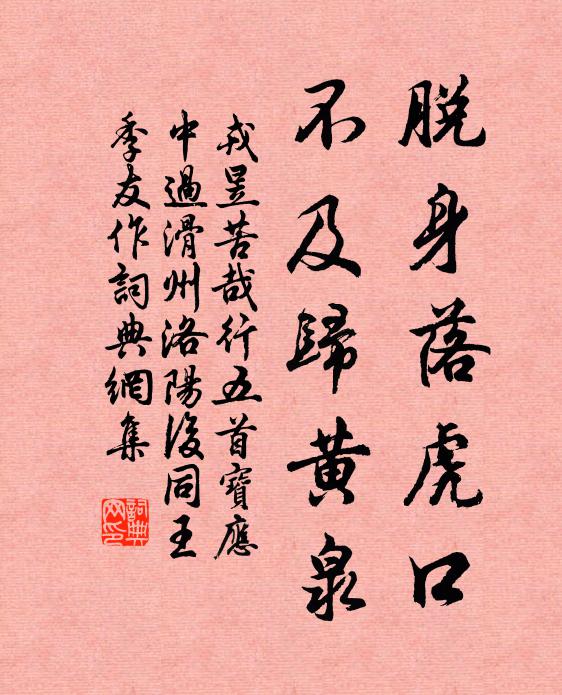 脫身落虎口
不及歸黃泉
戎昱苦哉行五首寶應
中過滑州洛陽後同王
季友作詞典網集
詞典
网印